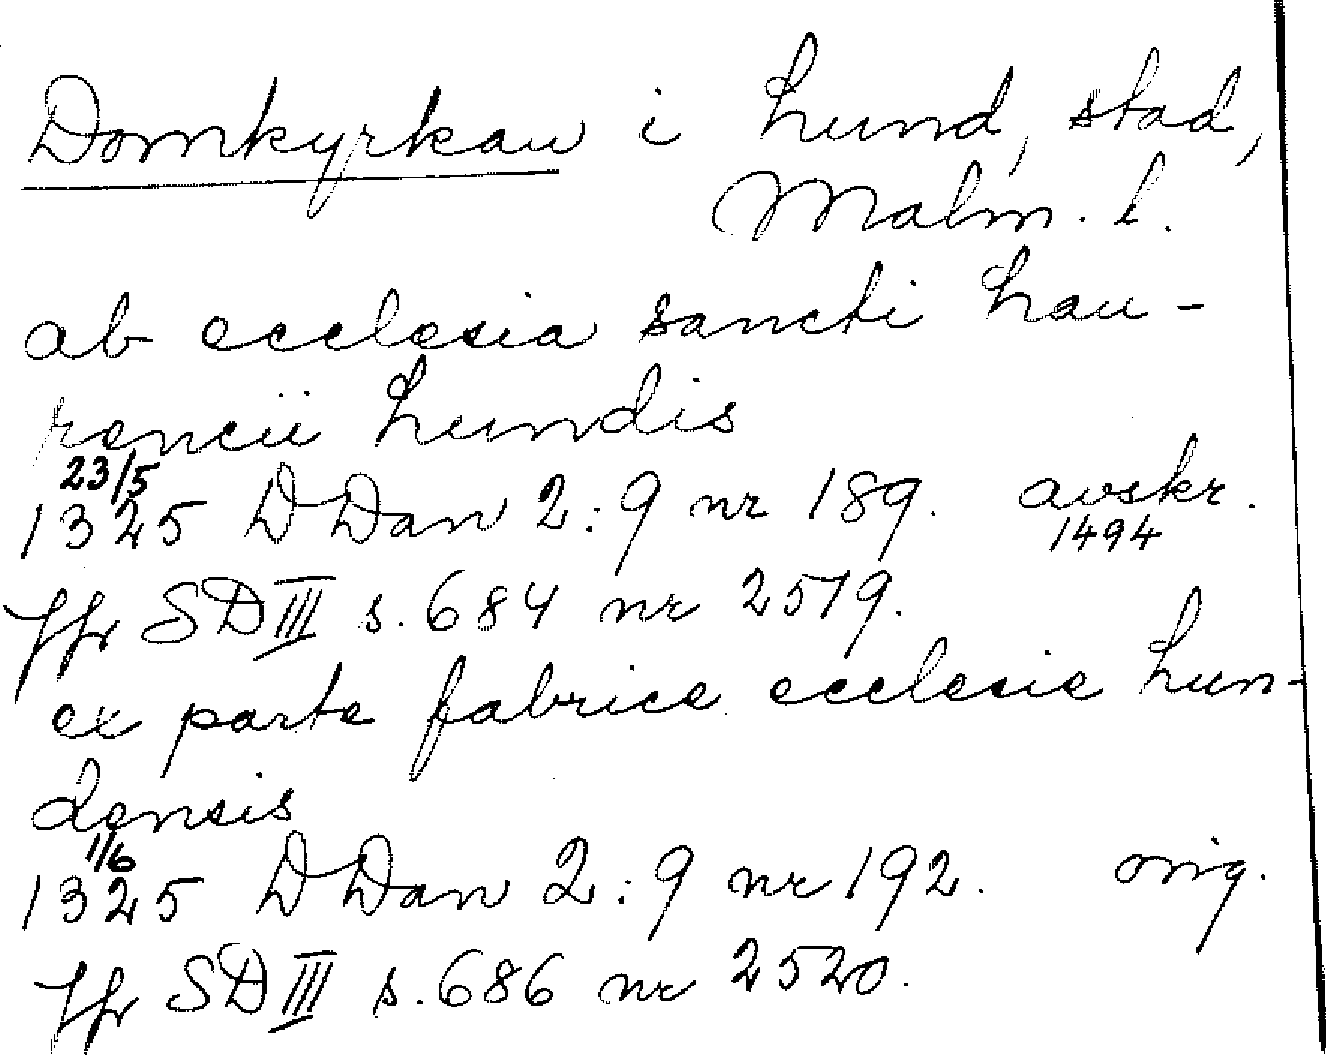 Domkyrkan i Lund, stad,
Malm. l.
ab ecclesia sancti Lau-
rencii Lundis
23/5
1325 DDan 2:9 nr 189. avskr.
1494
Jfr SD III s. 684 nr 2519.
ex parte fabrice ecclesie Lun-
densis
1/6
1325 DDan 2:9 nr 192. orig.
Jfr SD III s. 686 nr 2520.